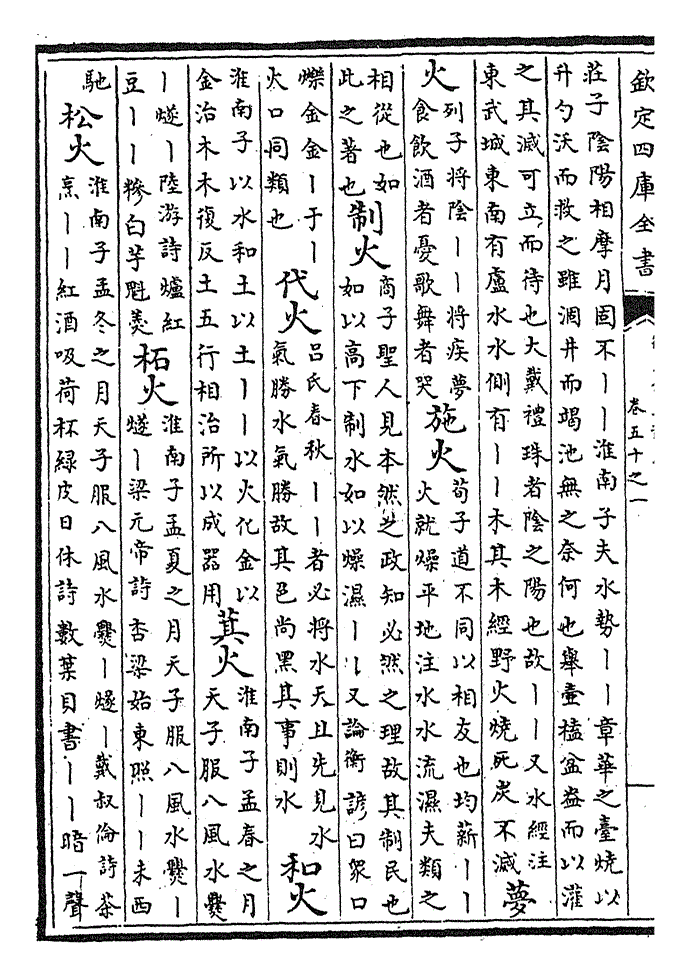 欽定四庫全書
卷五十之一
莊子陰陽相摩月固不丨丨淮南子夫水勢丨丨章華之臺燒以
升勺沃而救之雖涸井而竭池無之奈何也舉壷榼盆盎而以灌
之其滅可立而待也大戴禮珠者陰之陽也故丨丨又水經注
東武城東南有盧水水側有丨丨木其木經野火燒死炭不滅
夢
火
列子將陰丨丨將疾夢
食飲酒者憂歌舞者哭
施火
荀子道不同以相友也均薪丨丨
火就燥平地注水水流濕夫類之
相從也如
此之著也
制火
商子聖人見本然之政知必然之理故其制民也
如以高下制水如以燥濕丨丨又論衡諺曰衆口
爍金金丨于丨
火口同類也
代火
呂氏春秋丨丨者必將水天且先見水
氣勝水氣勝故其色尚黑其事則水
和火
淮南子以水和土以土丨丨以火化金以
金治木木復反土五行相治所以成器用
萁火
淮南子孟春之月
天子服八風水爨
丨燧丨陸游詩爐紅
豆丨丨糝白芋魁羮
柘火
淮南子孟夏之月天子服八風水爨丨
燧丨梁元帝詩杏梁始東照丨丨未西
馳
松火
淮南子孟冬之月天子服八風水爨丨燧丨戴叔倫詩茶
烹丨丨紅酒吸荷杯綠皮日休詩數葉貝書丨丨暗一聲